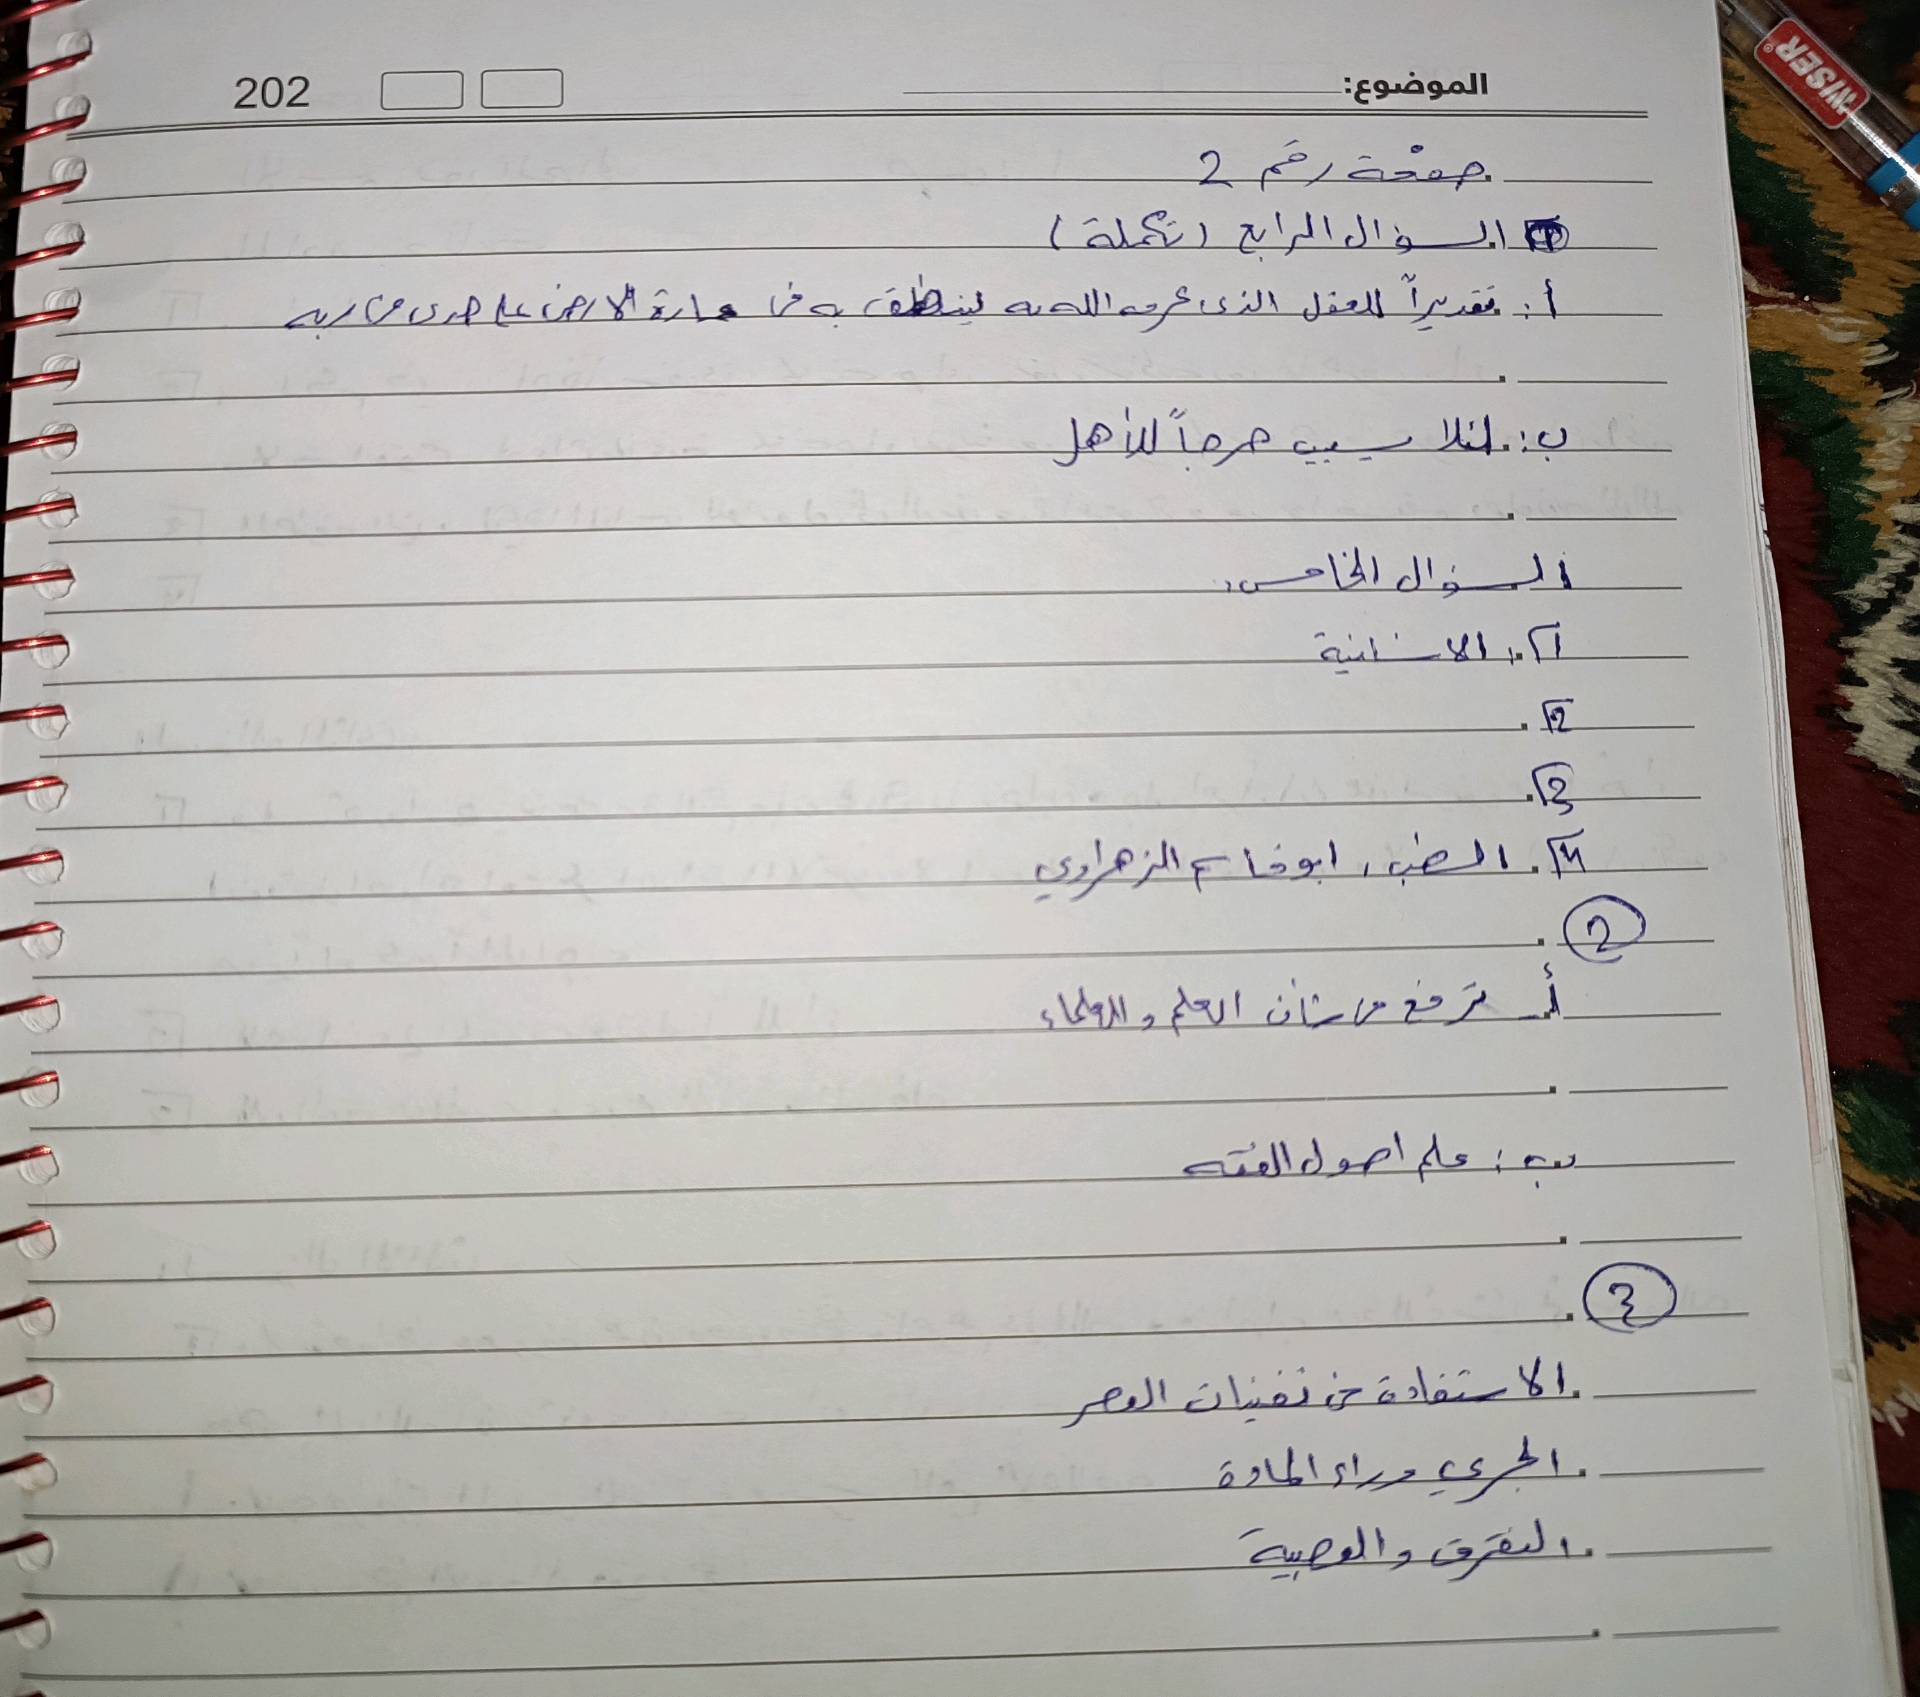 WISER
الموضوع:
202
صفحة رقم 2
السؤال الرابع (تكملة)
أ: تقديراً للعقل الذي كرمه الله به لينطلق به في عمارة الارض على هدى من ربه
ب: لئلا يسبب حرجاً للأهل
السؤال الخامس
1. الانسانية
2.
3.
4. الطب، ابو قاسم الزهراوي
2
أ_ ترفع من شأن العلم والعلماء
ب: علم اصول الفقه
3
الاستفادة من تقنيات العصر
الجري وراء المادة
التفرق والعصبية